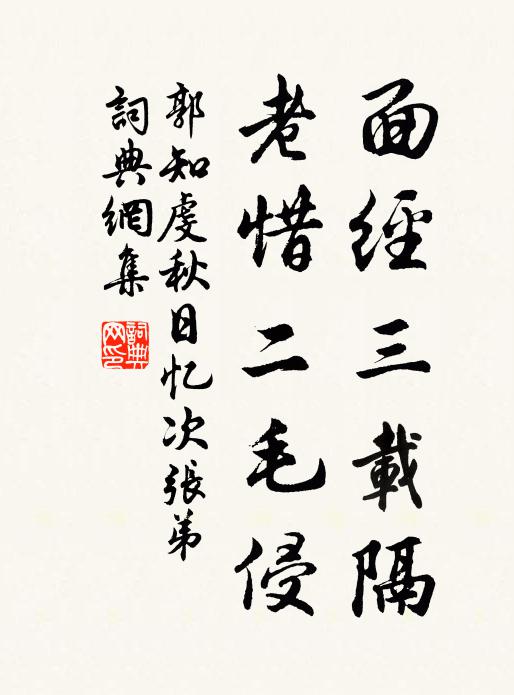 面經三載隔
老惜二毛侵
郭知虔秋日忆次張弟
詞典網集
詞典网印